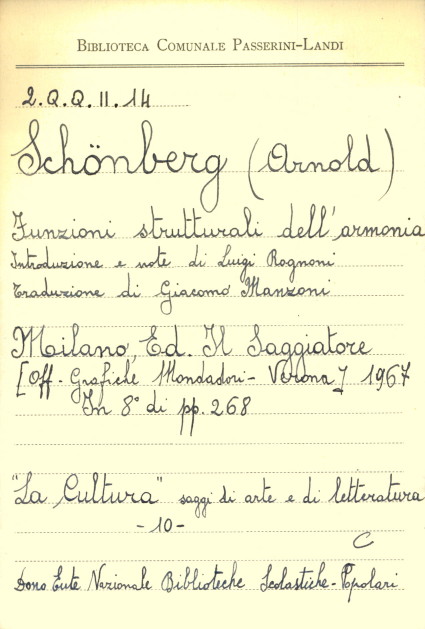 BIBLIOTECA COMUNALE PASSERINI-LANDI
2.Q.Q.II.14
Schönberg (Arnold)
Funzioni strutturali dell'armonia
Introduzione e note di Luigi Rognoni
Traduzione di Giacomo Manzoni
Milano, Ed. Il Saggiatore
[Off. Grafiche Mondadori - Verona] 1967
In 8° di pp. 268
"La Cultura" saggi di arte e di letteratura
- 10 -
C
Dono Ente Nazionale Biblioteche Scolastiche - Popolari